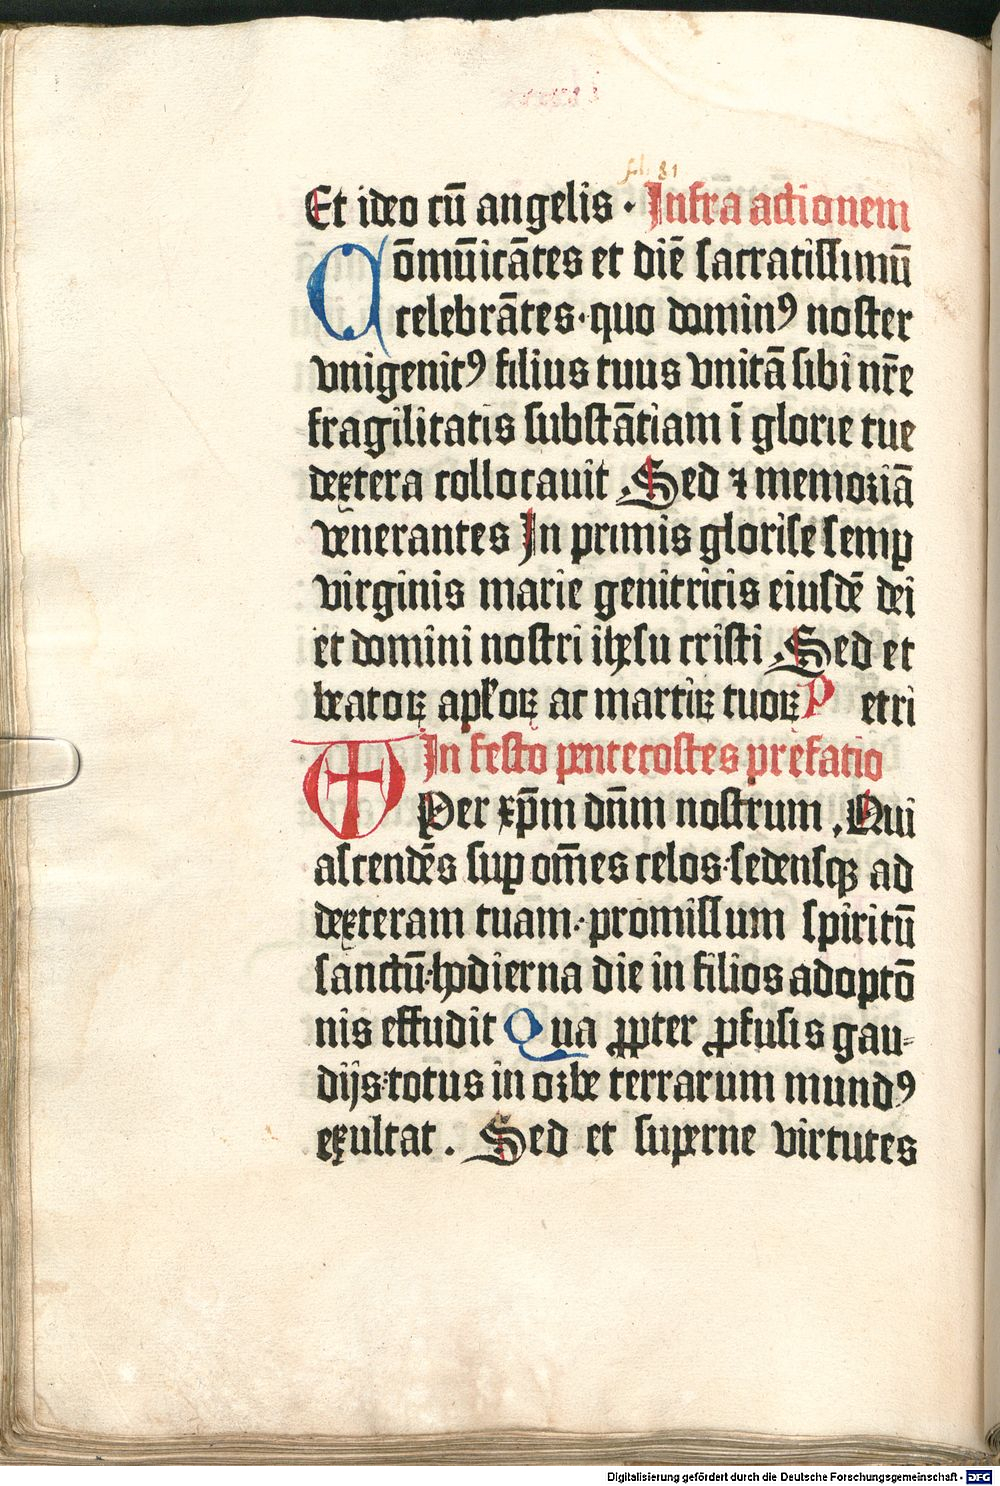 fol. 81
Et ideo cū angelis · Infra actionem
Cōmūicātes et diē sacratissimū
celebrātes · quo dominꝰ noster
vnigenitꝰ filius tuus vnitā sibi nr̄e
fragilitatis substātiam ī glorie tue
dextera collocauit Sed ⁊ memoriā
venerantes In primis gloriſe semꝑ
virginis marie genitricis eiusdē dei
et domini nostri ihesu cristi Sed et
beatoꝝ apl̄oꝝ ac martiꝝ tuoꝝ P etri
In festo pentecostes prefatio
Per xp̄m dn̄m nostrum , Qui
ascendēs suꝑ om̄es celos : sedensqꝫ ad
dexteram tuam : promissum spiritū
sanctū : hodierna die in filios adoptō
nis effudit Qua ꝓpter ꝓfusis gau-
dijs : totus in orbe terrarum mundꝰ
exultat . Sed et superne virtutes
Digitalisierung gefördert durch die Deutsche Forschungsgemeinschaft - DFG